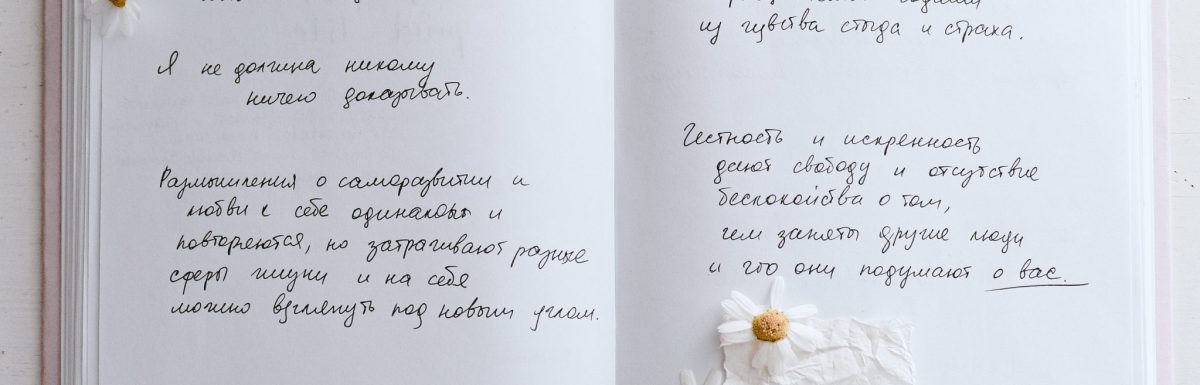 Я не должна никому
ничего доказывать.
Размышления о саморазвитии и
любви к себе одинаковы и
повторяются, но затрагивают разные
сферы жизни и на себя
можно взглянуть под новым углом.
из чувства стыда и страха.
Честность и искренность
дают свободу и отсутствие
беспокойства о том,
чем заняты другие люди
и что они подумают о вас.